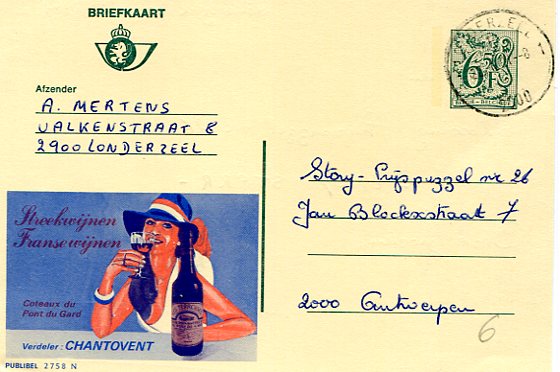 BRIEFKAART
6,50 F
Afzender
A. MERTENS
VALKENSTRAAT 8
2900 LONDERZEEL
Story - Prijspuzzel nr 26
Jan Blockxstraat 7
2000 Antwerpen
6
Streekwijnen
Franse wijnen
Coteaux du
Pont du Gard
Verdeler : CHANTOVENT
PUBLIBEL 2758 N